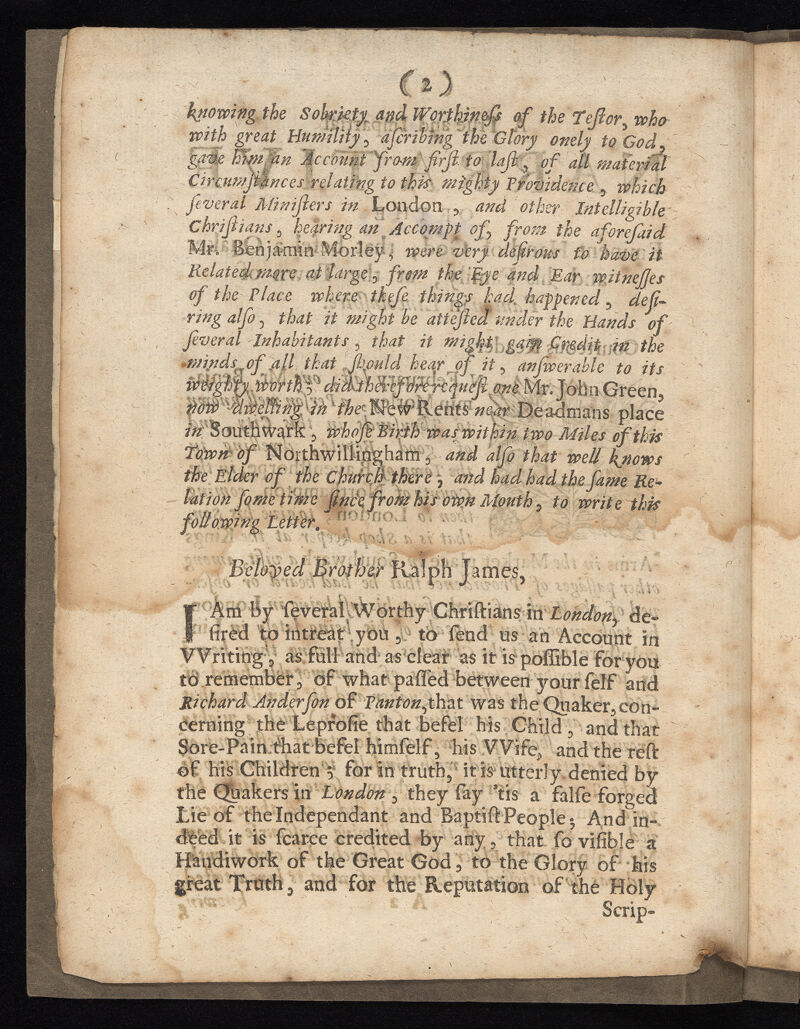 (2)
knowing the Sobriety and Worthineſs of the Teſtor, who
with great Humility, aſcribing the Glory onely to God,
gave him an Account from firſt to laſt, of all material
Circumſtances relating to this mighty Providence, which
ſeveral Miniſters in London, and other Intelligible
Chriſtians, hearing an Accompt of, from the aforeſaid
Mr. Benjamin Morley, were very deſirous to have it
Related more at large, from the Eye and Ear witneſſes
of the Place where theſe things had happened, deſi-
ring alſo, that it might be atteſted under the Hands of
ſeveral Inhabitants, that it might gain Credit in the
minds of all that ſhould hear of it, anſwerable to its
weighty worth; did therefore requeſt one Mr. John Green,
now dwelling in the New Rents near Deadmans place
in Southwark, whoſe Birth was within two Miles of this
Town of Northwillingham, and alſo that well knows
the Elder of the Church there; and had had the ſame Re-
lation ſome time ſince from his own Mouth, to write this
following Letter.
Beloved Brother Ralph James,
I Am by ſeveral Worthy Chriſtians in London, de-
ſired to intreat you, to ſend us an Account in
VVriting, as full and as clear as it is poſſible for you
to remember, of what paſſed between your ſelf and
Richard Anderſon of Panton, that was the Quaker, con-
cerning the Leproſie that befel his Child, and that
Sore-Pain that befel himſelf, his VVife, and the reſt
of his Children; for in truth, it is utterly denied by
the Quakers in London, they ſay 'tis a falſe forged
Lie of the Independant and Baptiſt People; And in-
deed it is ſcarce credited by any, that ſo viſible a
Handiwork of the Great God, to the Glory of his
great Truth, and for the Reputation of the Holy
Scrip-